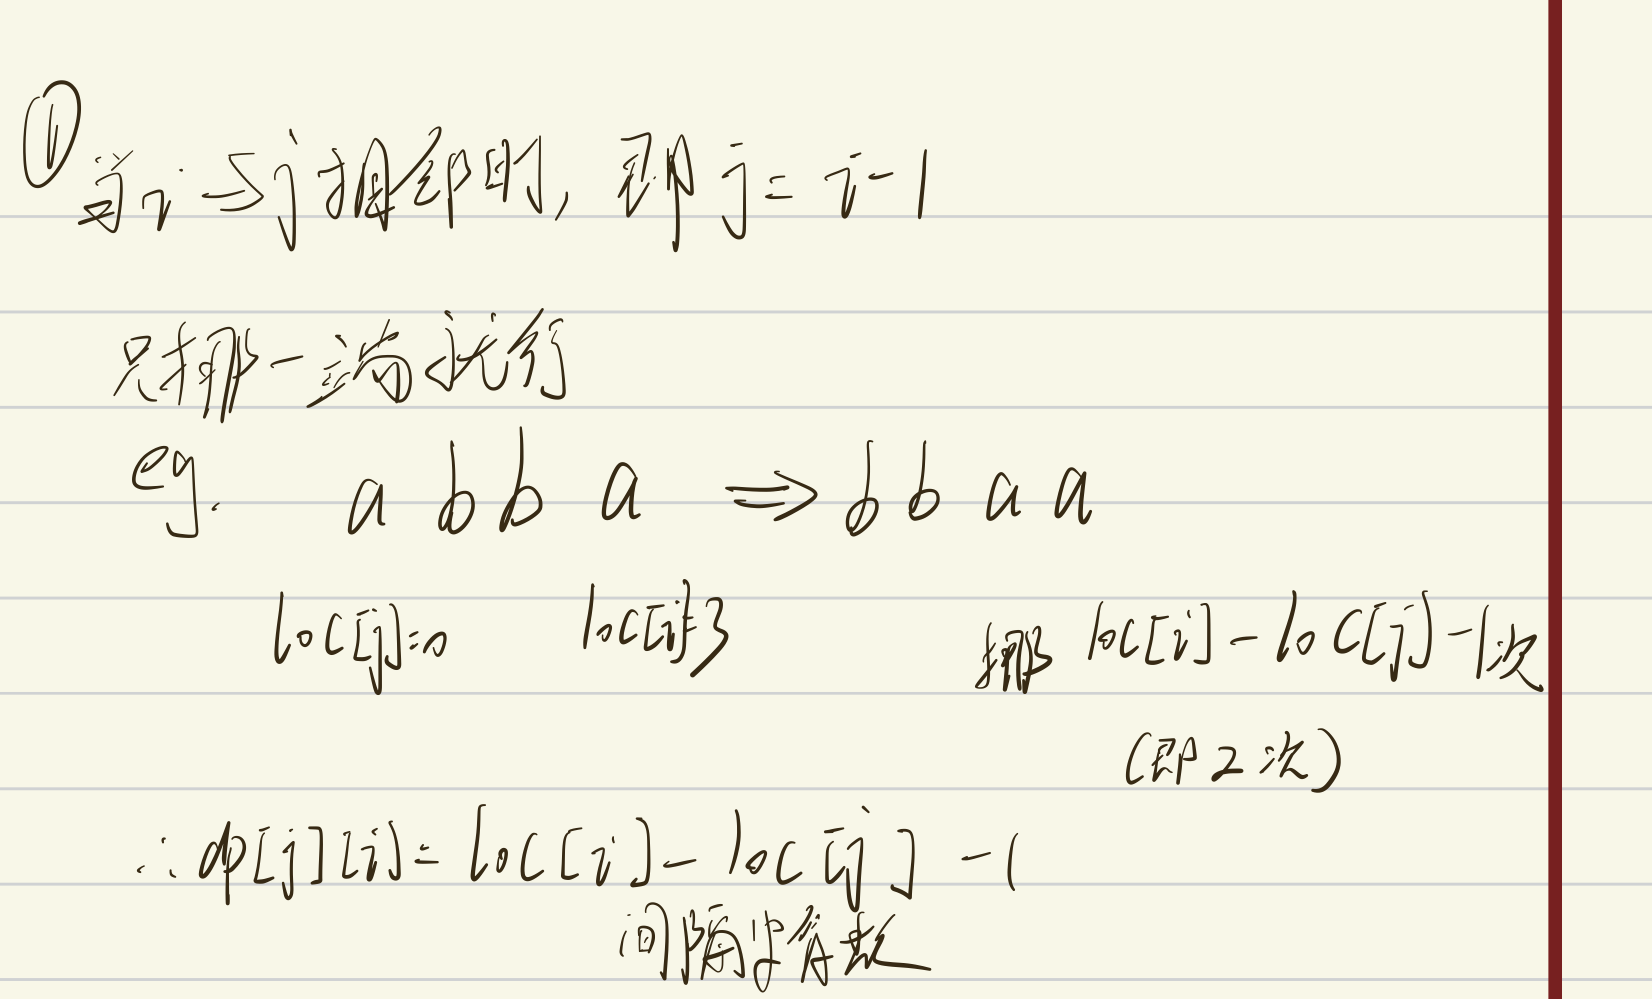 ① 当i与j相邻时, 即j = i-1
只挪一端就行
eg. a b b a ⇒ b b a a
loc[j]=0 loc[i]=3 挪 loc[i] - loc[j] -1次
(即2次)
∴ dp[j][i] = loc[i] - loc[j] -1
间隔字符数